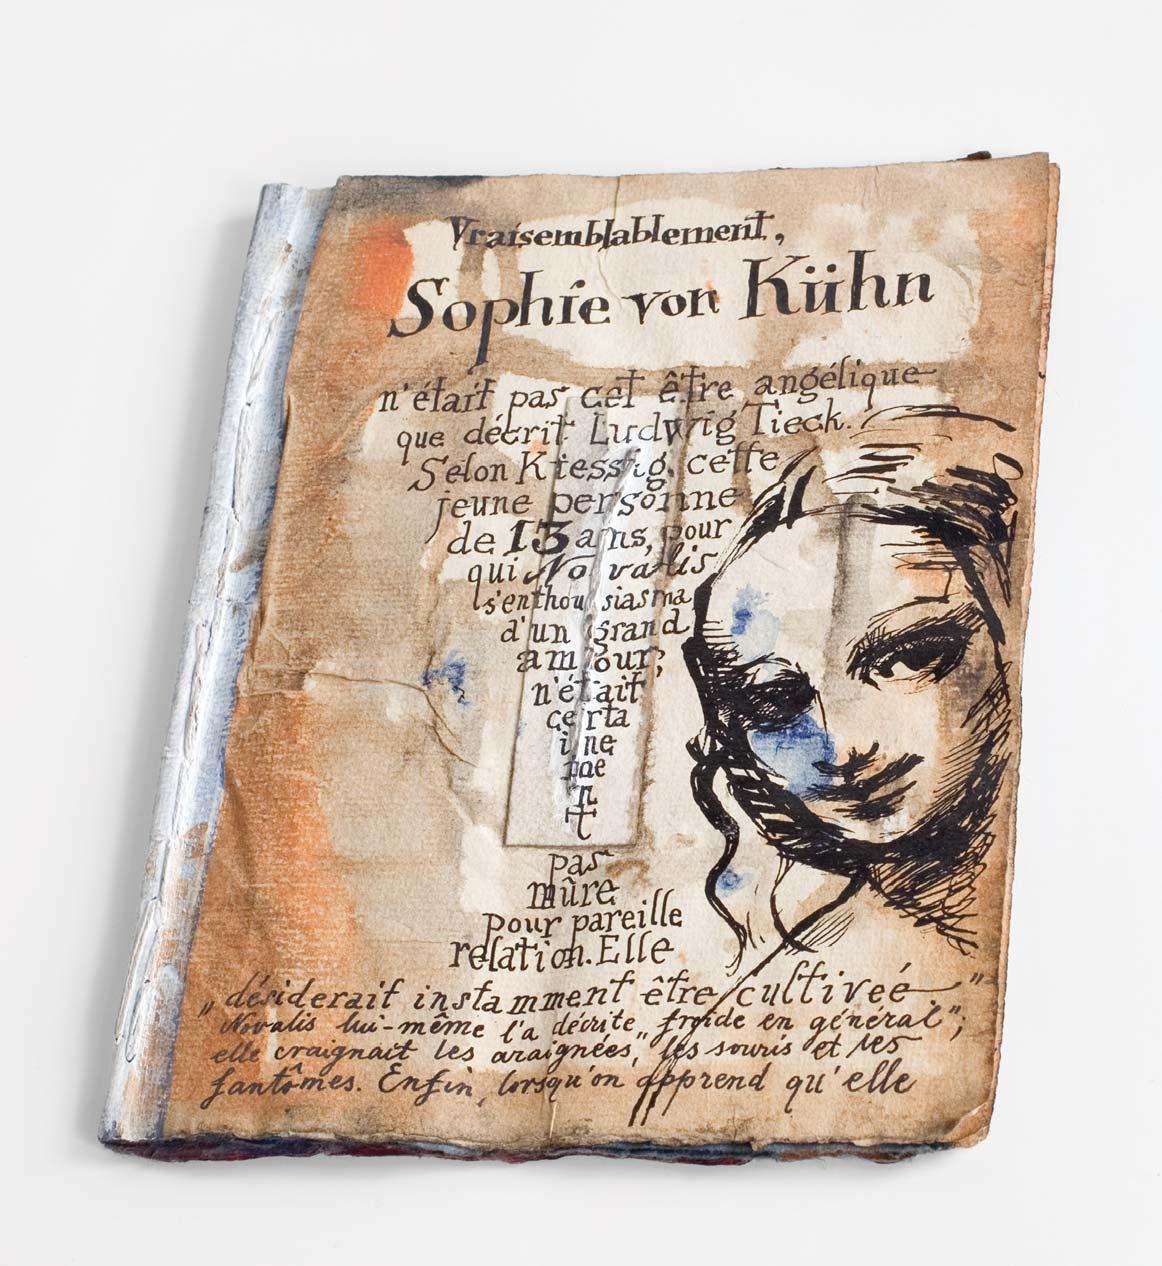 Vraisemblablement,
Sophie von Kühn
n'était pas cet être angélique
que décrit Ludwig Tieck.
Selon Kiessig, cette
jeune personne
de 13 ans, pour
qui Novalis
s'enthousiasma
d'un grand
amour,
n'était
certa
ine
me
n
t
pas
mûre
pour pareille
relation. Elle
„désiderait instamment être cultiveé"
Novalis lui-même l'a décrite „froide en général";
elle craignait les araignées, les souris et les
fantômes. Enfin, lorsqu'on apprend qu'elle